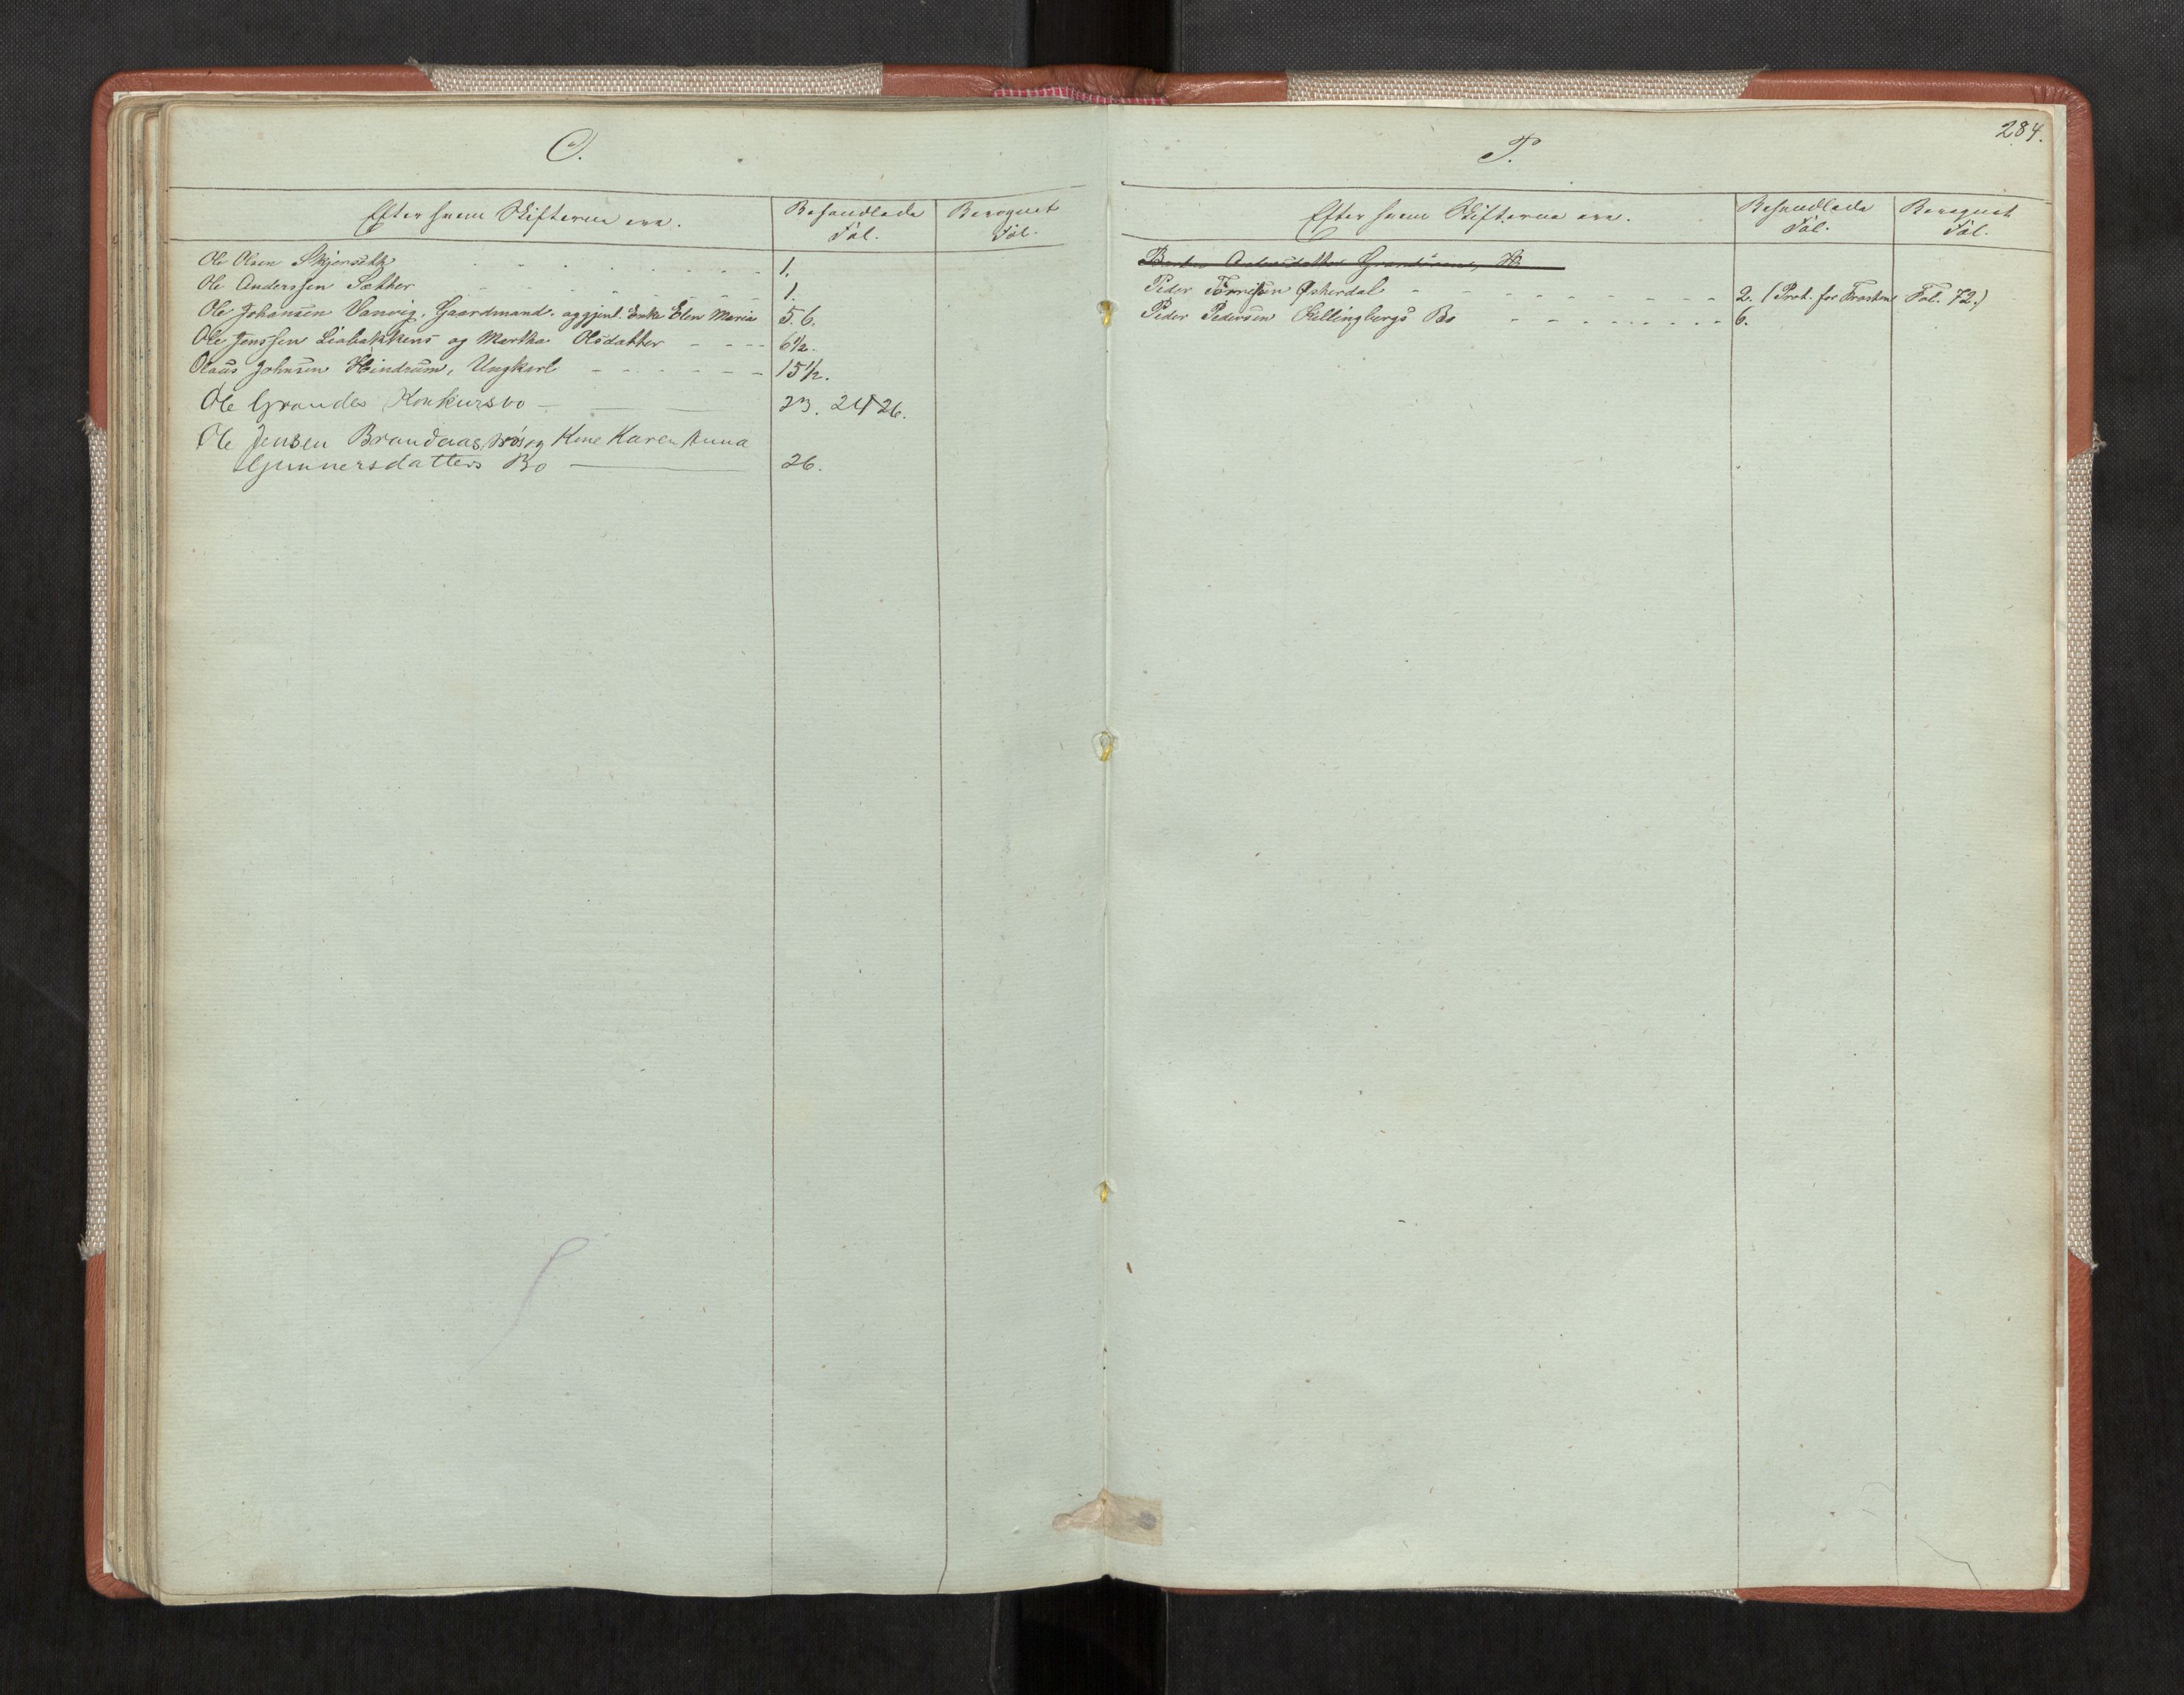 O.
Efter hvem Skifterne ere.
Behandlede Fol.
Beregnet Fol.
Ole Olsen Skjersetth 1.
Ole Anderssen Sæther 1.
Ole Johansen Vanvig, Gaardmand, og gjenl. Enke Elen Maria 5. 6.
Ole Jenssen Liabakkens og Martha Olsdatter 6½.
Olaus Johnsen Hindrum, Ungkarl 15½.
Ole Grandes Konkursbo 23. 24 26.
Ole Jensen Brandaas, og Kone Karen Anna
Gunnersdatters Bo 26.
284.
P.
Efter hvem Skifterne ere.
Behandlede Fol.
Beregnet Fol.
Peder Øsherdal 2. (Prot. for Frosten Fol. 72.)
Peder Pedersen Killingbergs Bo 6.